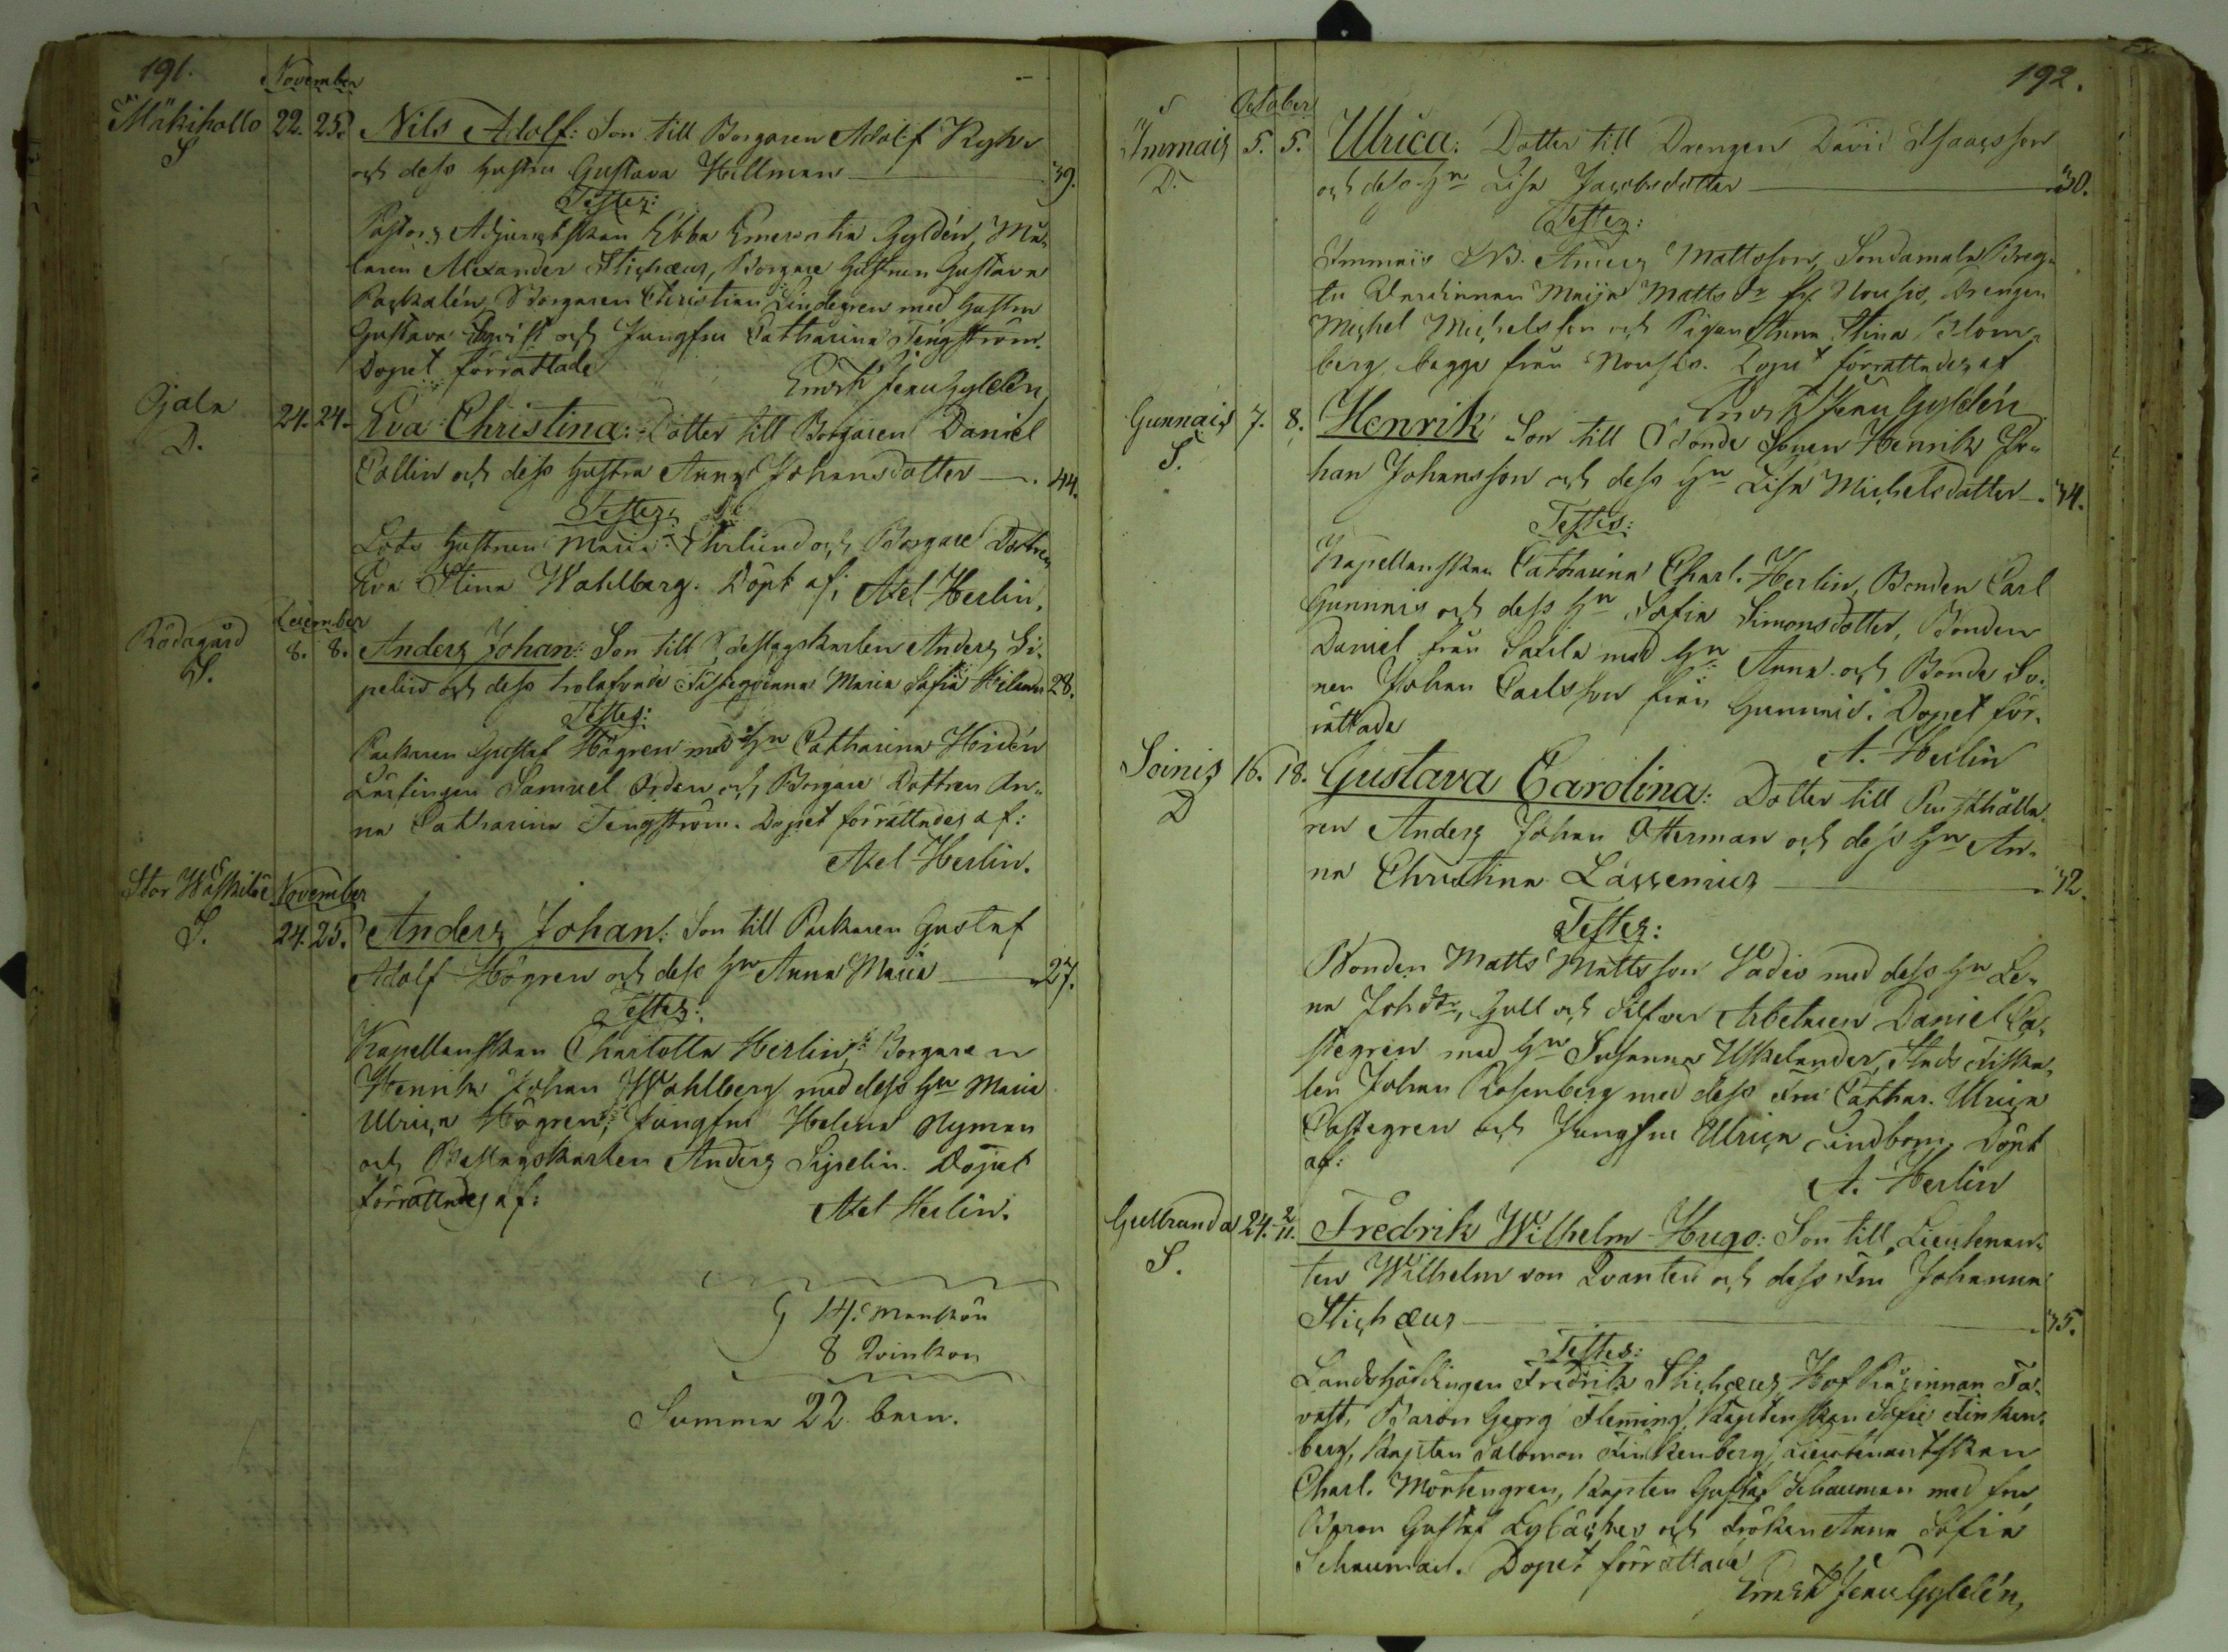 191.
November
Mäkihollo 22. 25. Nils Adolf: Son till Borgaren Adolf
S och dess hustru Gustava Hellman 39.
Testes:
Pastors Adjunctskan Ebba Emerentia Gyldén, Må-
laren Alexander Stichæus, Borgare hustrun Gustava
Borgaren Christian Lindegren med hustru
Gustava och Jungfru Catharina Tengström.
Dopet förrättade
Gyldén,
Ojala 24. 24. Eva Christina: Dotter till Borgaren Daniel
D. Collin och dess hustru Anna Johansdotter 44.
Testes:
Lots hustrun Maria och Borgare Dottren
Eva Stina Wahlberg. Döpt af: Axel Herlin.
December
Rådagård 8. 8. Anders Johan: Son till Anders Si-
S. pelius och dess trolofvade Maria Sofia 28.
Testes:
Parkaren Gustaf Högren med Hu Catharina
Lärlingen Samuel och Borgare Dottren An-
na Catharina Tengström. Dopet förrättades af:
Axel Herlin.
Stor November
S. 24. 25. Anders Johan: Son till Parkaren Gustaf
Adolf Högren och dess Hu Anna Maria 27.
Testes:
Kapellanskan Charlotta Herlin, Borgaren
Henrik Johan Wahlberg med dess Hu Maria
Ulrica Högren, Jungfru Helena Nyman
och Anders Sipelin. Dopet
förrättades af:
Axel Herlin.
14. Mankön
8 Qvinkön
Summa 22 barn.
192.
October
Immais 5. 5. Ulrica: Dotter till Drengen David Isaacsson
D. och dess Hu Lisa Jacobsdotter 30.
Testes:
Immais Anders Mattsson,
Maija Matts Dr fr. Nousis, Drengen
Michel Michelsson och Pigan Anna Stina Blom-
berg, bägge från Nousis. Dopet förrättades af
Gyldén
Gunnais 7. 8. Henrik Son till Bonde Sonen Henrik Jo-
S. han Johansson och dess Hu Lisa Michelsdotter 34.
Testes:
Kapellanskan Catharina Charl. Herlin, Bonden Carl
Gunnais och dess Hu Sofia Simonsdotter, Bonden
Daniel från med Hu Anna och Bonde So-
nen Johan Carlsson från Gunnais. Dopet för-
rättade
A. Herlin
Soinis 16. 18. Gustava Carolina: Dotter till Rusthålla-
D ren Anders Johan Otterman och dess Hu An-
na Christina Lassenius 32.
Testes:
Bonden Matts Mattsson med dess Hu Le-
na Joh Dr, Gull och Silfver Arbetaren Daniel Ca-
stegren med Hu Susanna Uskelander, Stads Fiska-
len Johan Rosenberg med dess Fru Cathar. Ulrica
Castegren och Jungfru Ulrica Lindbom, Döpt
af:
A. Herlin
Gullranda 24. 2/11. Fredrik Wilhelm Hugo: Son till Lieutenan-
S. ten Wilhelm von Qvanten och dess Fru Johanna
Stichæus 35.
Testes:
Landshöfdingen Fredrik Stichæus, Hof Rådinnan Ta-
vast, Baron Georg Fleming, Kaptenskan Sofie Finken-
berg, Kapten Salomon Finkenberg, Lieutenantskan
Charl. Mörtengren, Kapten Gustaf Schauman med fru
Baron Gustaf Lybäcker och Fröken Anna Sofia
Schauman. Dopet förrättade
Gyldén,